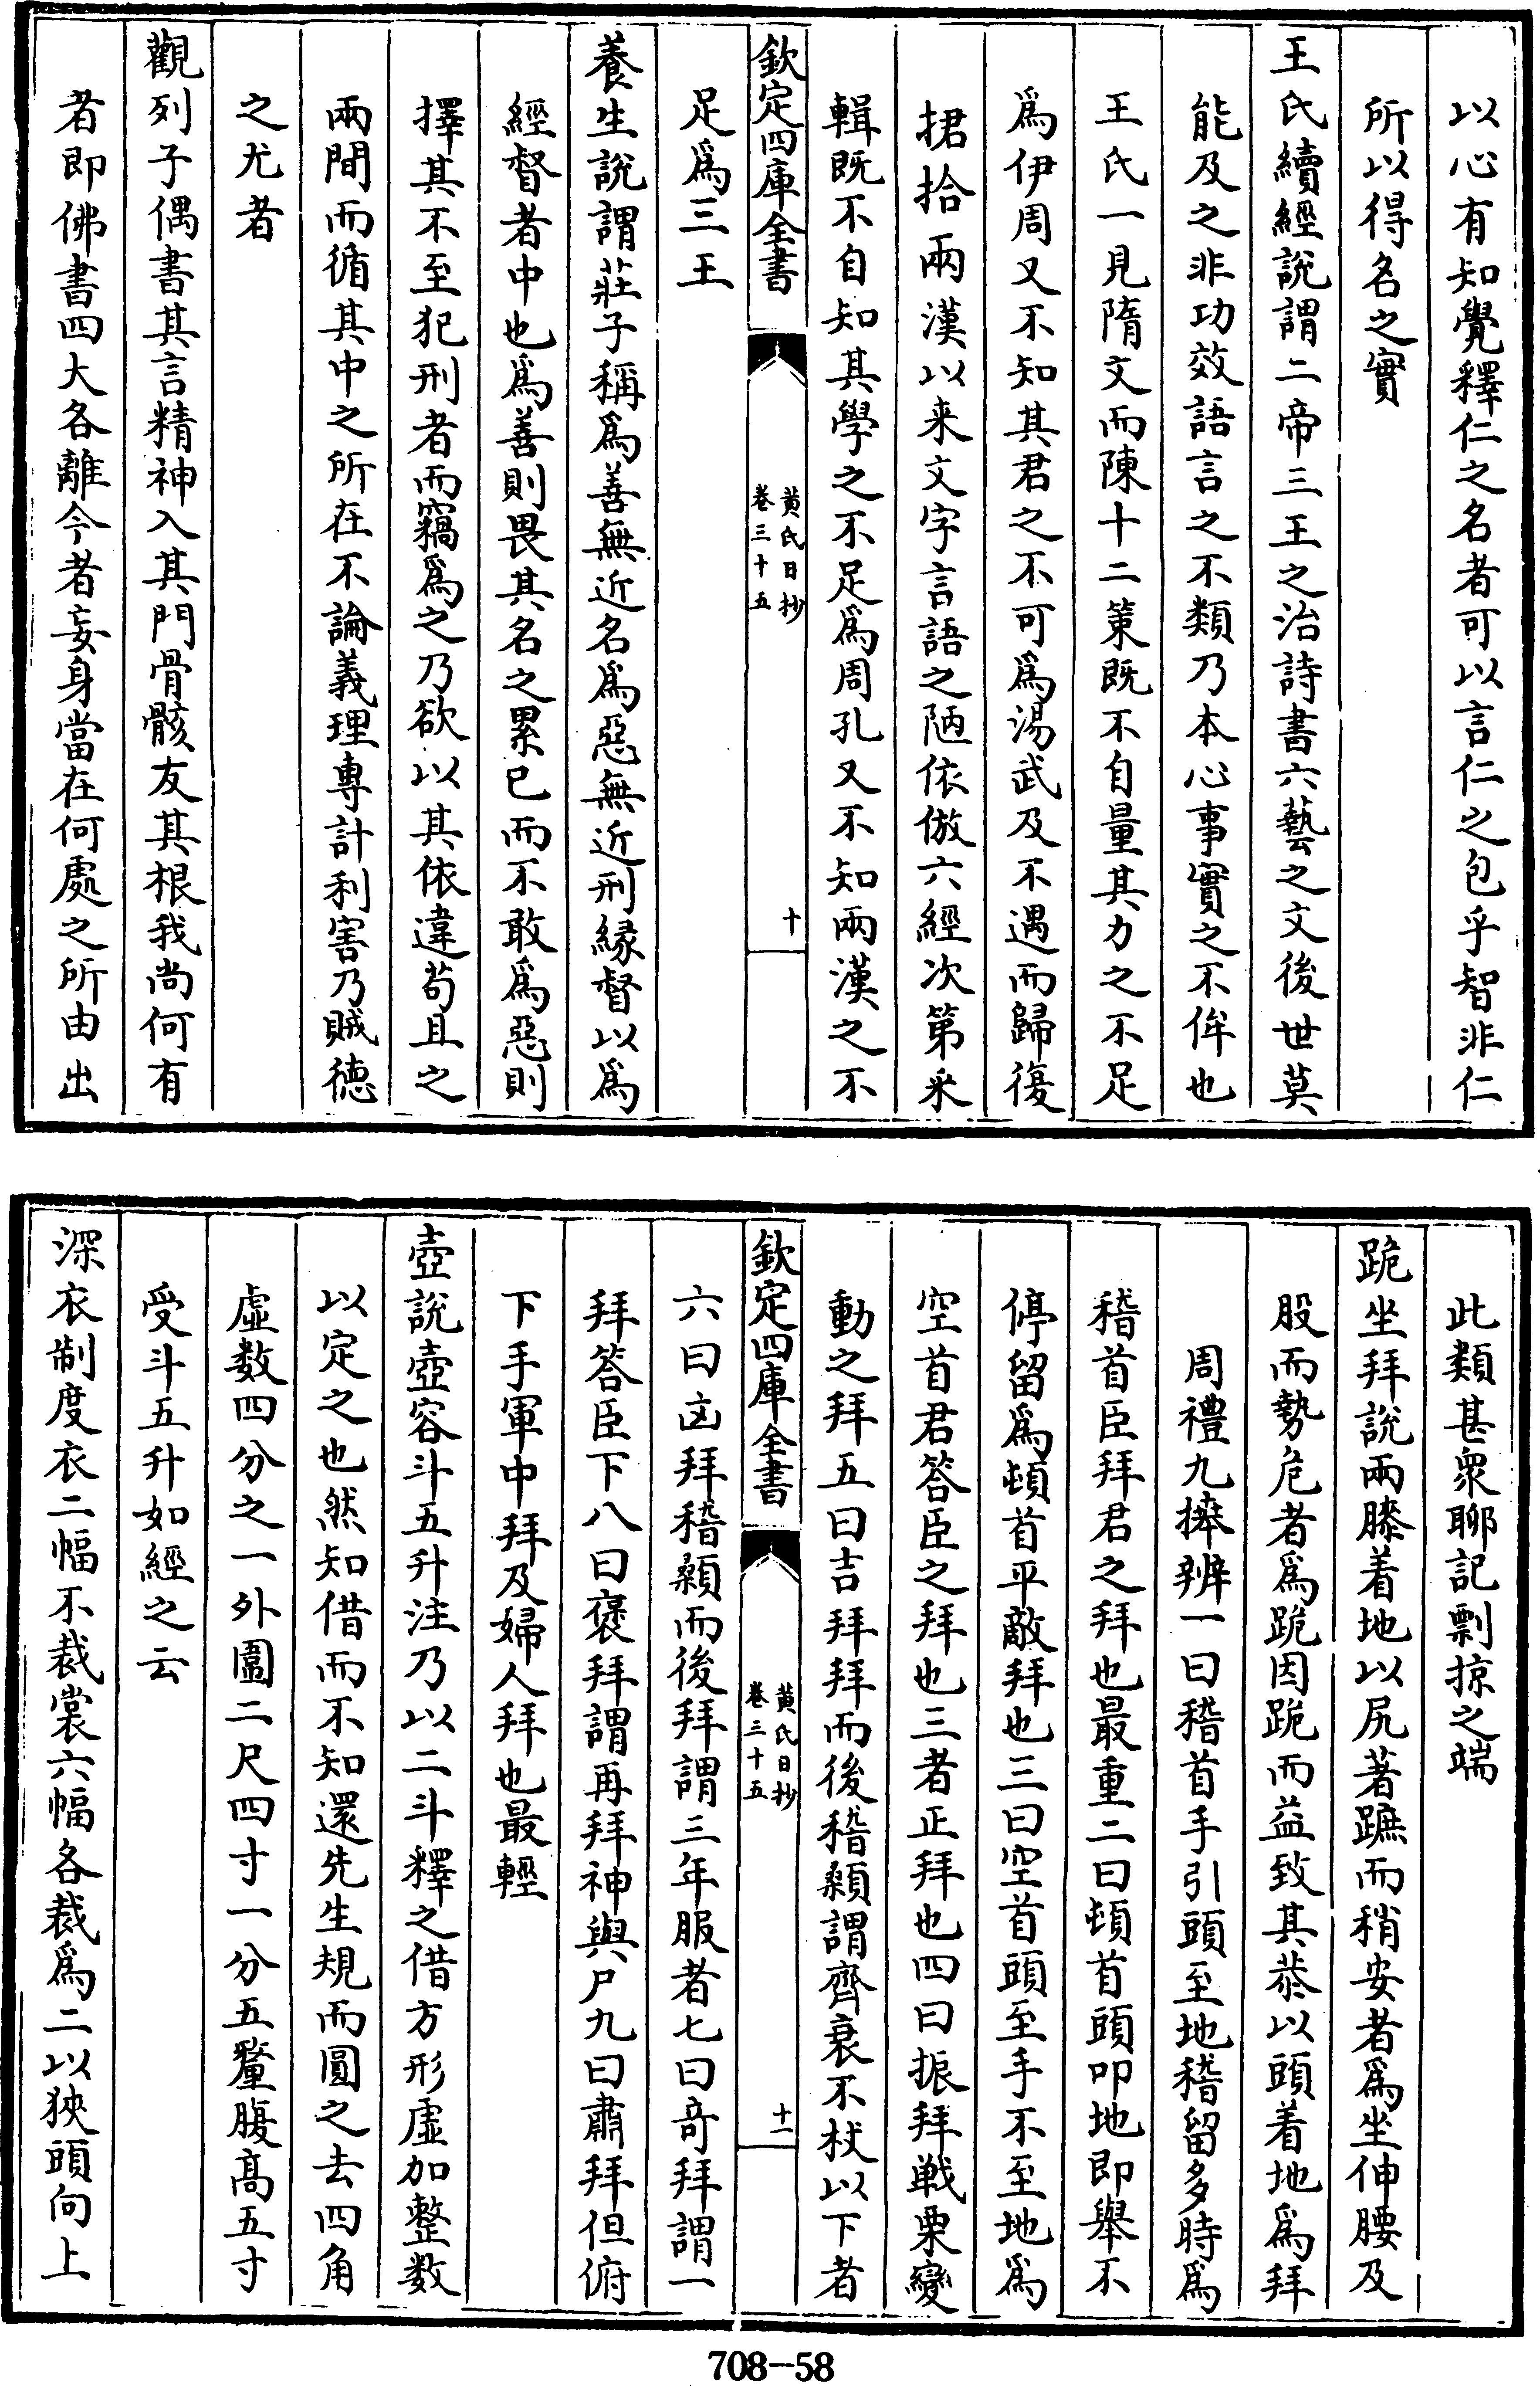 以心有知覺釋仁之名者可以言仁之包乎智非仁
所以得名之實
王氏續經說謂二帝三王之治詩書六藝之文後世莫
能及之非功效語言之不類乃本心事實之不侔也
王氏一見隋文而陳十二策既不自量其力之不足
爲伊周又不知其君之不可爲湯武及不遇而歸復
捃拾兩漢以来文字言語之陋依倣六經次第采
輯既不自知其學之不足爲周孔又不知兩漢之不
欽定四庫全書
黄氏日抄
卷三十五
十
足爲三王
養生說謂莊子稱爲善無近名爲惡無近刑緣督以爲
經督者中也爲善則畏其名之累已而不敢爲惡則
擇其不至犯刑者而竊爲之乃欲以其依違苟且之
兩間而循其中之所在不論義理專計利害乃賊德
之尤者
觀列子偶書其言精神入其門骨骸友其根我尚何有
者即佛書四大各離今者妄身當在何處之所由出
此類甚衆聊記剽掠之端
跪坐拜說兩膝着地以尻著蹠而稍安者爲坐伸腰及
股而勢危者爲跪因跪而益致其恭以頭着地爲拜
周禮九𢷎辨一曰稽首手引頭至地稽留多時爲
稽首臣拜君之拜也最重二曰頓首頭叩地即舉不
停留爲頓首平敵拜也三曰空首頭至手不至地爲
空首君答臣之拜也三者正拜也四曰振拜戰栗變
動之拜五曰吉拜拜而後稽顙謂齊衰不杖以下者
欽定四庫全書
黄氏日抄
卷三十五
十一
六曰凶拜稽顙而後拜謂三年服者七曰奇拜謂一
拜答臣下八曰褒拜謂再拜神與尸九曰肅拜但俯
下手軍中拜及婦人拜也最輕
壺說壺容斗五升注乃以二斗釋之借方形虛加整数
以定之也然知借而不知還先生規而圓之去四角
虛数四分之一外圍二尺四寸一分五釐腹高五寸
受斗五升如經之云
深衣制度衣二幅不裁裳六幅各裁爲二以狹頭向上
708-58